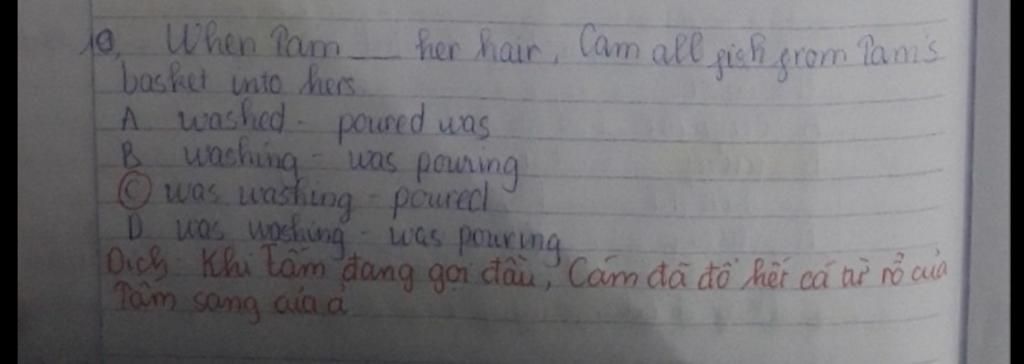 10, When Tam __ her hair, Cam all fish from Tam's
basket into hers.
A washed - poured was
B washing - was pouring
C was washing - poured
D was washing - was pouring
Dịch: Khi Tấm đang gọi đầu, Cám đã đổ hết cá từ rổ của
Tấm sang của ả